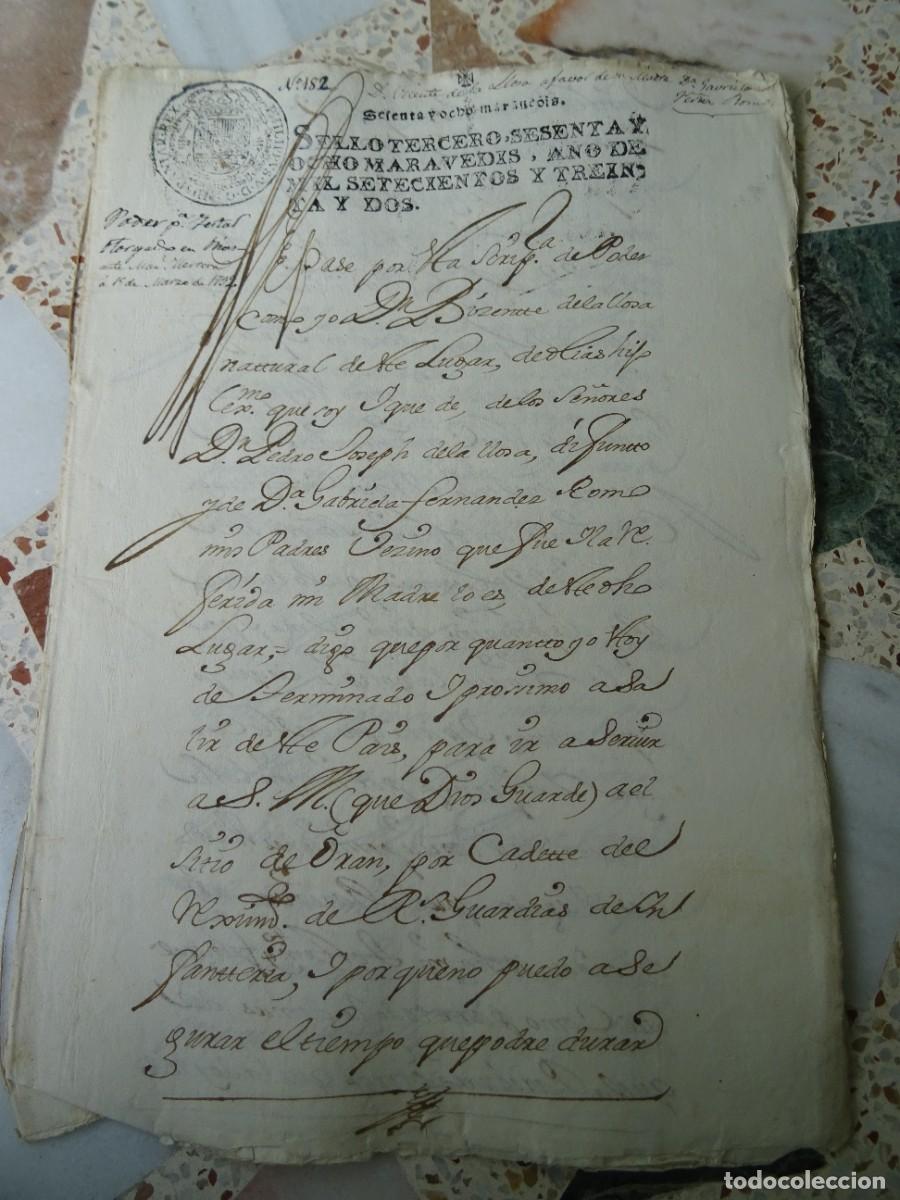 Nº 152
D. Vicente de la Llosa a favor de su Madre Dª Gabriela
Sesenta y ocho maravedis.
SELLO TERCERO, SESENTA Y
OCHO MARAVEDIS, AÑO DE
MIL SETECIENTOS Y TREIN-
TA Y DOS.
Poder pª Testar
otorgado en
de Marzo de 1732
Pase por Esta Scripª de Poder
Como yo Dn Bizentte de la Llosa
nattural de Este Lugar, de
que soy I que de, de los Señores
Dn Pedro Joseph de la Llosa, difuncto
y de Dª Gabriela Fernandez Romo
mis Padres Vezino que fue I la Re
ferida mi Madre lo es, de Estedho
Lugar,= digo que por quantto yo Estoy
de Terminado I proximo a Sa
lir de Este Pais, para ir a Servir
a S. M. (que Dios Guarde) a el
Sitio de Oran, por Cadette del
Reximdº de Rs Guardias de In
fantteria, I porque no puedo a Se
gurar el tiempo que podre durar
todocoleccion